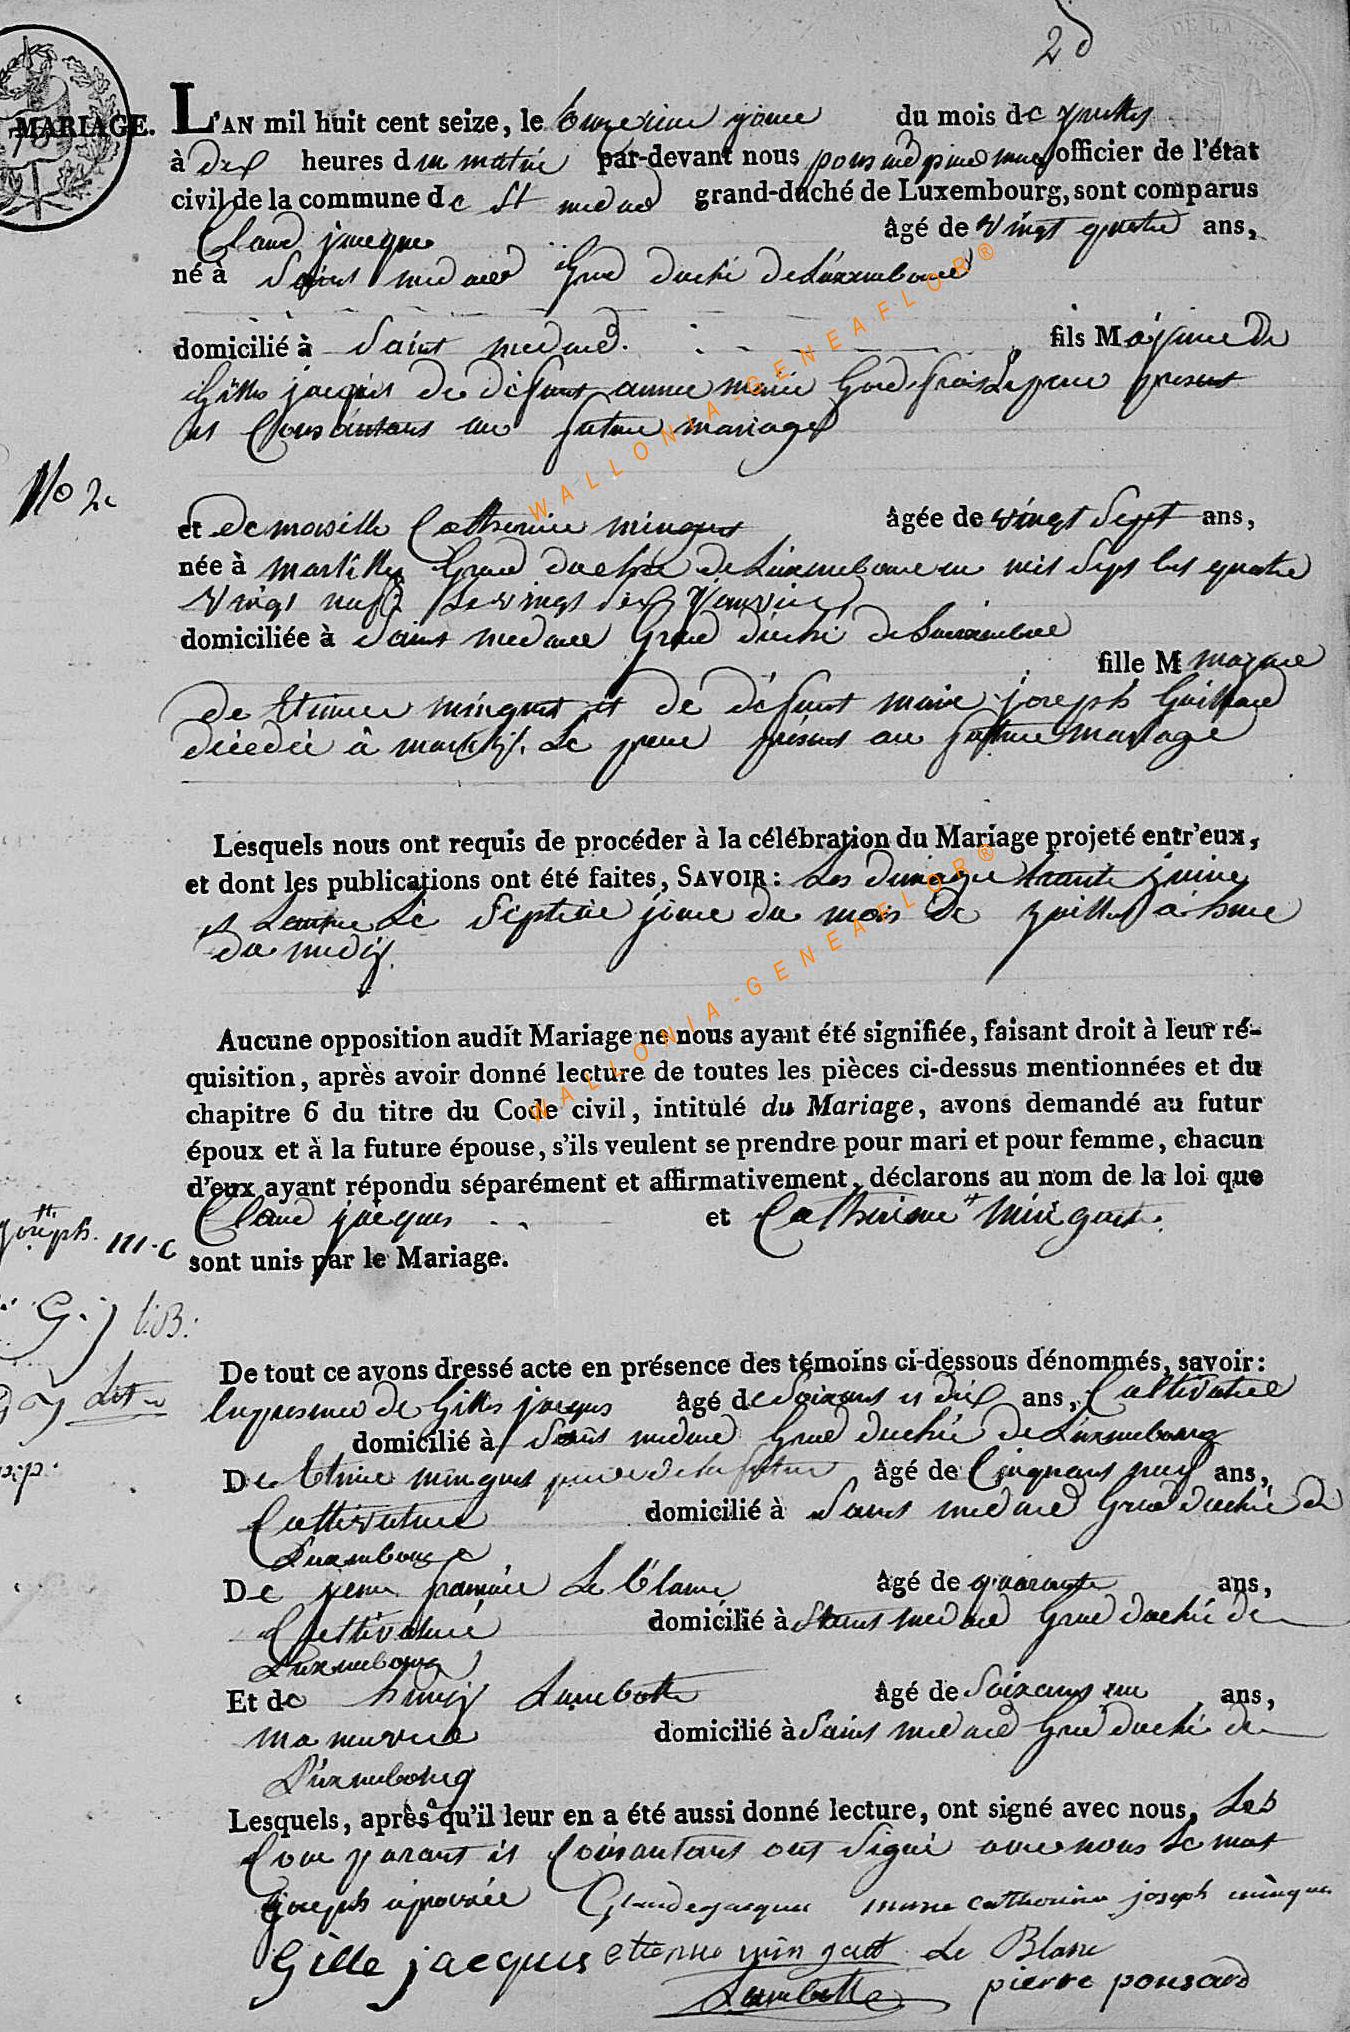 2d
MARIAGE. L'AN mil huit cent seize, le onzeime jour du mois de juillet
à dix heures du matin par-devant nous ponsard pierre officier de l'état
civil de la commune de St medard grand-duché de Luxembourg, sont comparus
Claud jacques âgé de vingt quatre ans,
né à Saint medard Grand duché de Luxembourg
domicilié à Saint medard. fils Majeure De
Gilles jacques de défunt anne marie Godfroid Le pere present
et Consantant au future mariage
No 2
et Demoiselle Catherine minguet âgée de vingt Sept ans,
née à martilly Grand duché de Luxembourg en mil Sept Cent quatre
Vingt neuf Le vingt dix Janvier
domiciliée à Saint medard Grand duché de Luxembourg
fille M majeure
de Etienne minguet et de défunt marie joseph Gaillard
décedée à martilly. Le pere présent au future mariage
Lesquels nous ont requis de procéder à la célébration du Mariage projeté entr'eux,
et dont les publications ont été faites, SAVOIR: Les dimanche trante juin
et Lautre Le Septeme jour du mois de juillet à heure
du midy.
Aucune opposition audit Mariage ne nous ayant été signifiée, faisant droit à leur ré-
quisition, après avoir donné lecture de toutes les pièces ci-dessus mentionnées et du
chapitre 6 du titre du Code civil, intitulé du Mariage, avons demandé au futur
époux et à la future épouse, s'ils veulent se prendre pour mari et pour femme, chacun
d'eux ayant répondu séparément et affirmativement, déclarons au nom de la loi que
Claud jacques et Catherine minguet.
joseph.
sont unis par le Mariage.
De tout ce avons dressé acte en présence des témoins ci-dessous dénommés, savoir:
En presence de Gilles jacques âgé de Soixant et dix ans, Cultivateur
domicilié à Saint medard Grand duché de Luxembourg
De Etiene minguet pere de la future âgé de Cinquant neuf ans,
Cultivateur domicilié à Saint medard Grand duché de
Luxembourg
De jean francois Le Blanc âgé de quarante ans,
Cultivateur domicilié à Saint medard Grand duché de
Luxembourg
Et de henry Lambotte âgé de Soixant un ans,
manuvre domicilié à Saint medard Grand duché de
Luxembourg
Lesquels, après qu'il leur en a été aussi donné lecture, ont signé avec nous, Les
Comparant et Consantant ont Signé avec nous Le mot
joseph aprouvée Claude jacques marie catherine joseph minguet
Gille jacques etienne minguet Le Blanc
Lambotte pierre ponsard
WALLONIA-GENEAFLOR®
WALLONIA-GENEAFLOR®